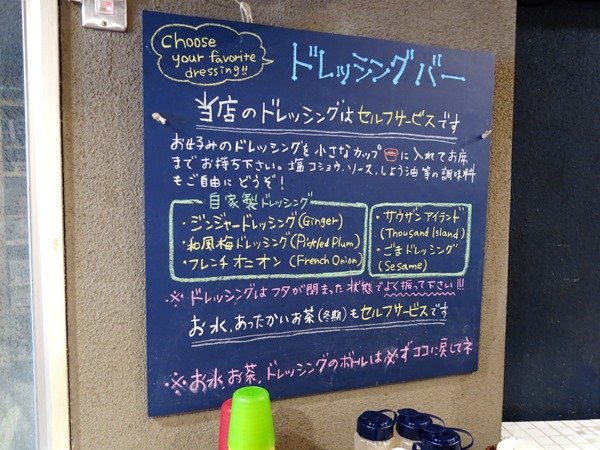 Choose
your favorite
dressing!!
ドレッシングバー
当店のドレッシングはセルフサービスです
お好みのドレッシングを小さなカップに入れてお席
までお持ち下さい。塩コショウ、ソース、しょう油等の調味料
もご自由にどうぞ!
自家製ドレッシング
・ジンジャードレッシング(Ginger)
・和風梅ドレッシング(Pickled Plum)
・フレンチオニオン(French Onion)
・サウザンアイランド
(Thousand Island)
・ごまドレッシング
(Sesame)
※ドレッシングはフタが閉まった状態でよく振って下さい!!!
お水、あったかいお茶(冬期)もセルフサービスです
※お水お茶、ドレッシングのボトルは必ずココに戻してネ